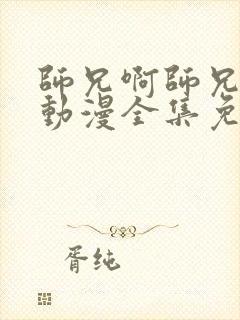 師兄啊師兄
動漫全集免
胥纯